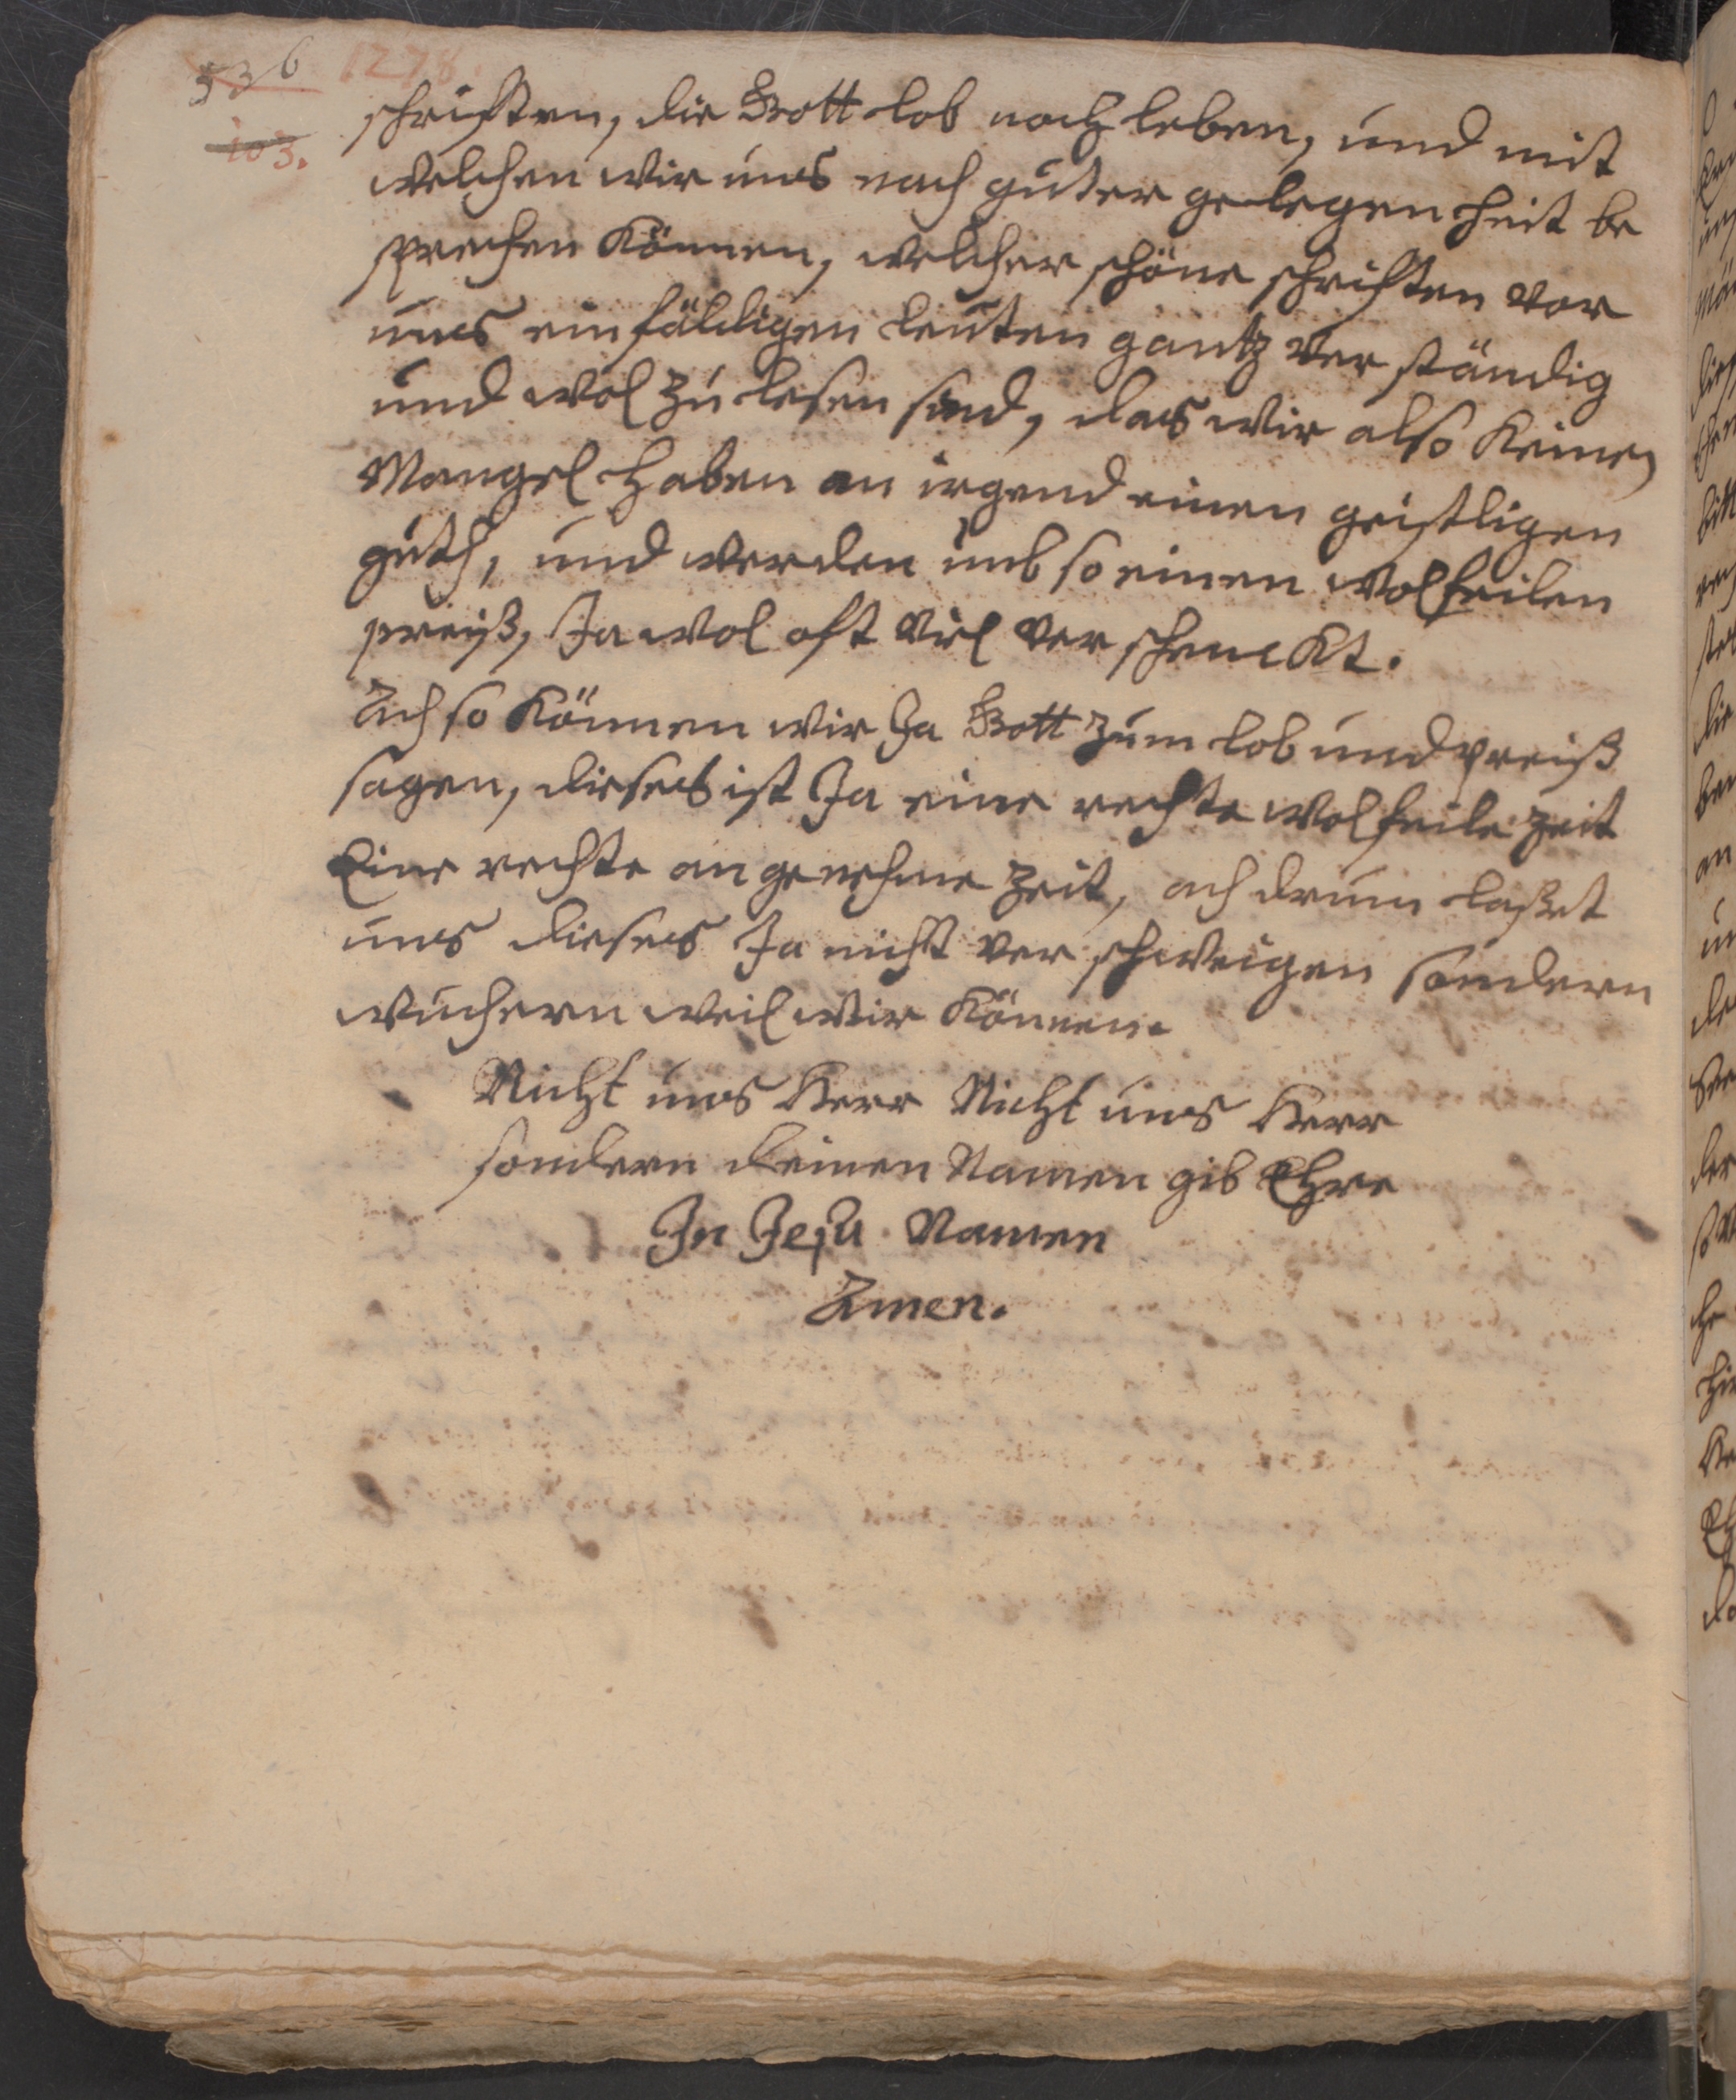 536 1278.
103.
schrifften, die Gott lob noch leben, und mit
welchen wir uns nach guter gelegen heit be
sprechen können, welcher schöne schrifften vor
uns ein fäldigen leuten gantz ver ständig
und wol zu lesen sind, das wir also keinen
Mangel haben an irgend einen geistligen
guth, und werden umb so einen wolfeilen
preiß, Ja wol oft viel ver schenckt.
Ach so können wir Ja Gott zum lob und preiß
sagen, dieses ist Ja eine rechte wolfeile zeit
Eine rechte an genehme zeit, ach drum laßet
uns dieses Ja nicht ver schweigen sondern
wuchern weil wir können.
Nicht uns Herr Nicht uns Herr
sondern deinen Namen gib Ehre
In Jesu Namen
Amen.